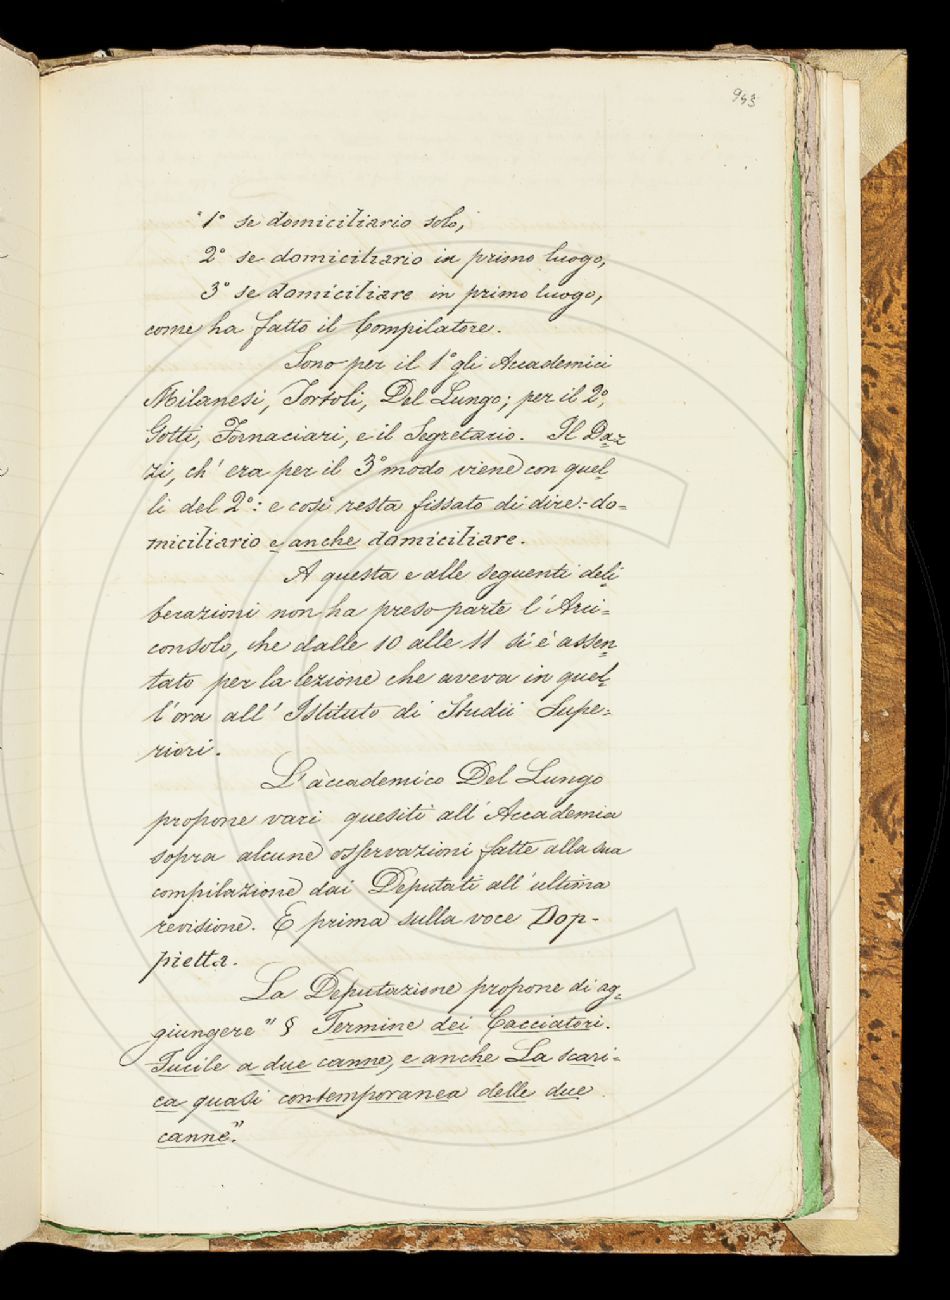 943
1° se domiciliario solo;
2° se domiciliario in primo luogo,
3° se domiciliare in primo luogo,
come ha fatto il Compilatore.
Sono per il 1° gli Accademici
Milanesi, Tortoli, Del Lungo; per il 2°,
Gotti, Fornaciari, e il Segretario. Il Daz-
zi, ch' era per il 3° modo viene con quel-
li del 2°: e così resta fissato di dire:- do-
miciliario e anche domiciliare.
A questa e alle seguenti deli-
berazioni non ha preso parte l' Arci-
consolo, che dalle 10 alle 11 si è assen-
tato per la lezione che aveva in quel-
l'ora all' Istituto di Studii Supe-
riori.
L'accademico Del Lungo
propone vari quesiti all' Accademia
sopra alcune osservazioni fatte alla sua
compilazione dai Deputati all' ultima
revisione. E prima sulla voce Dop-
pietta.
La Deputazione propone di ag-
giungere " § Termine dei Cacciatori.
Fucile a due canne, e anche La scari-
ca quasi contemporanea delle due
canne".